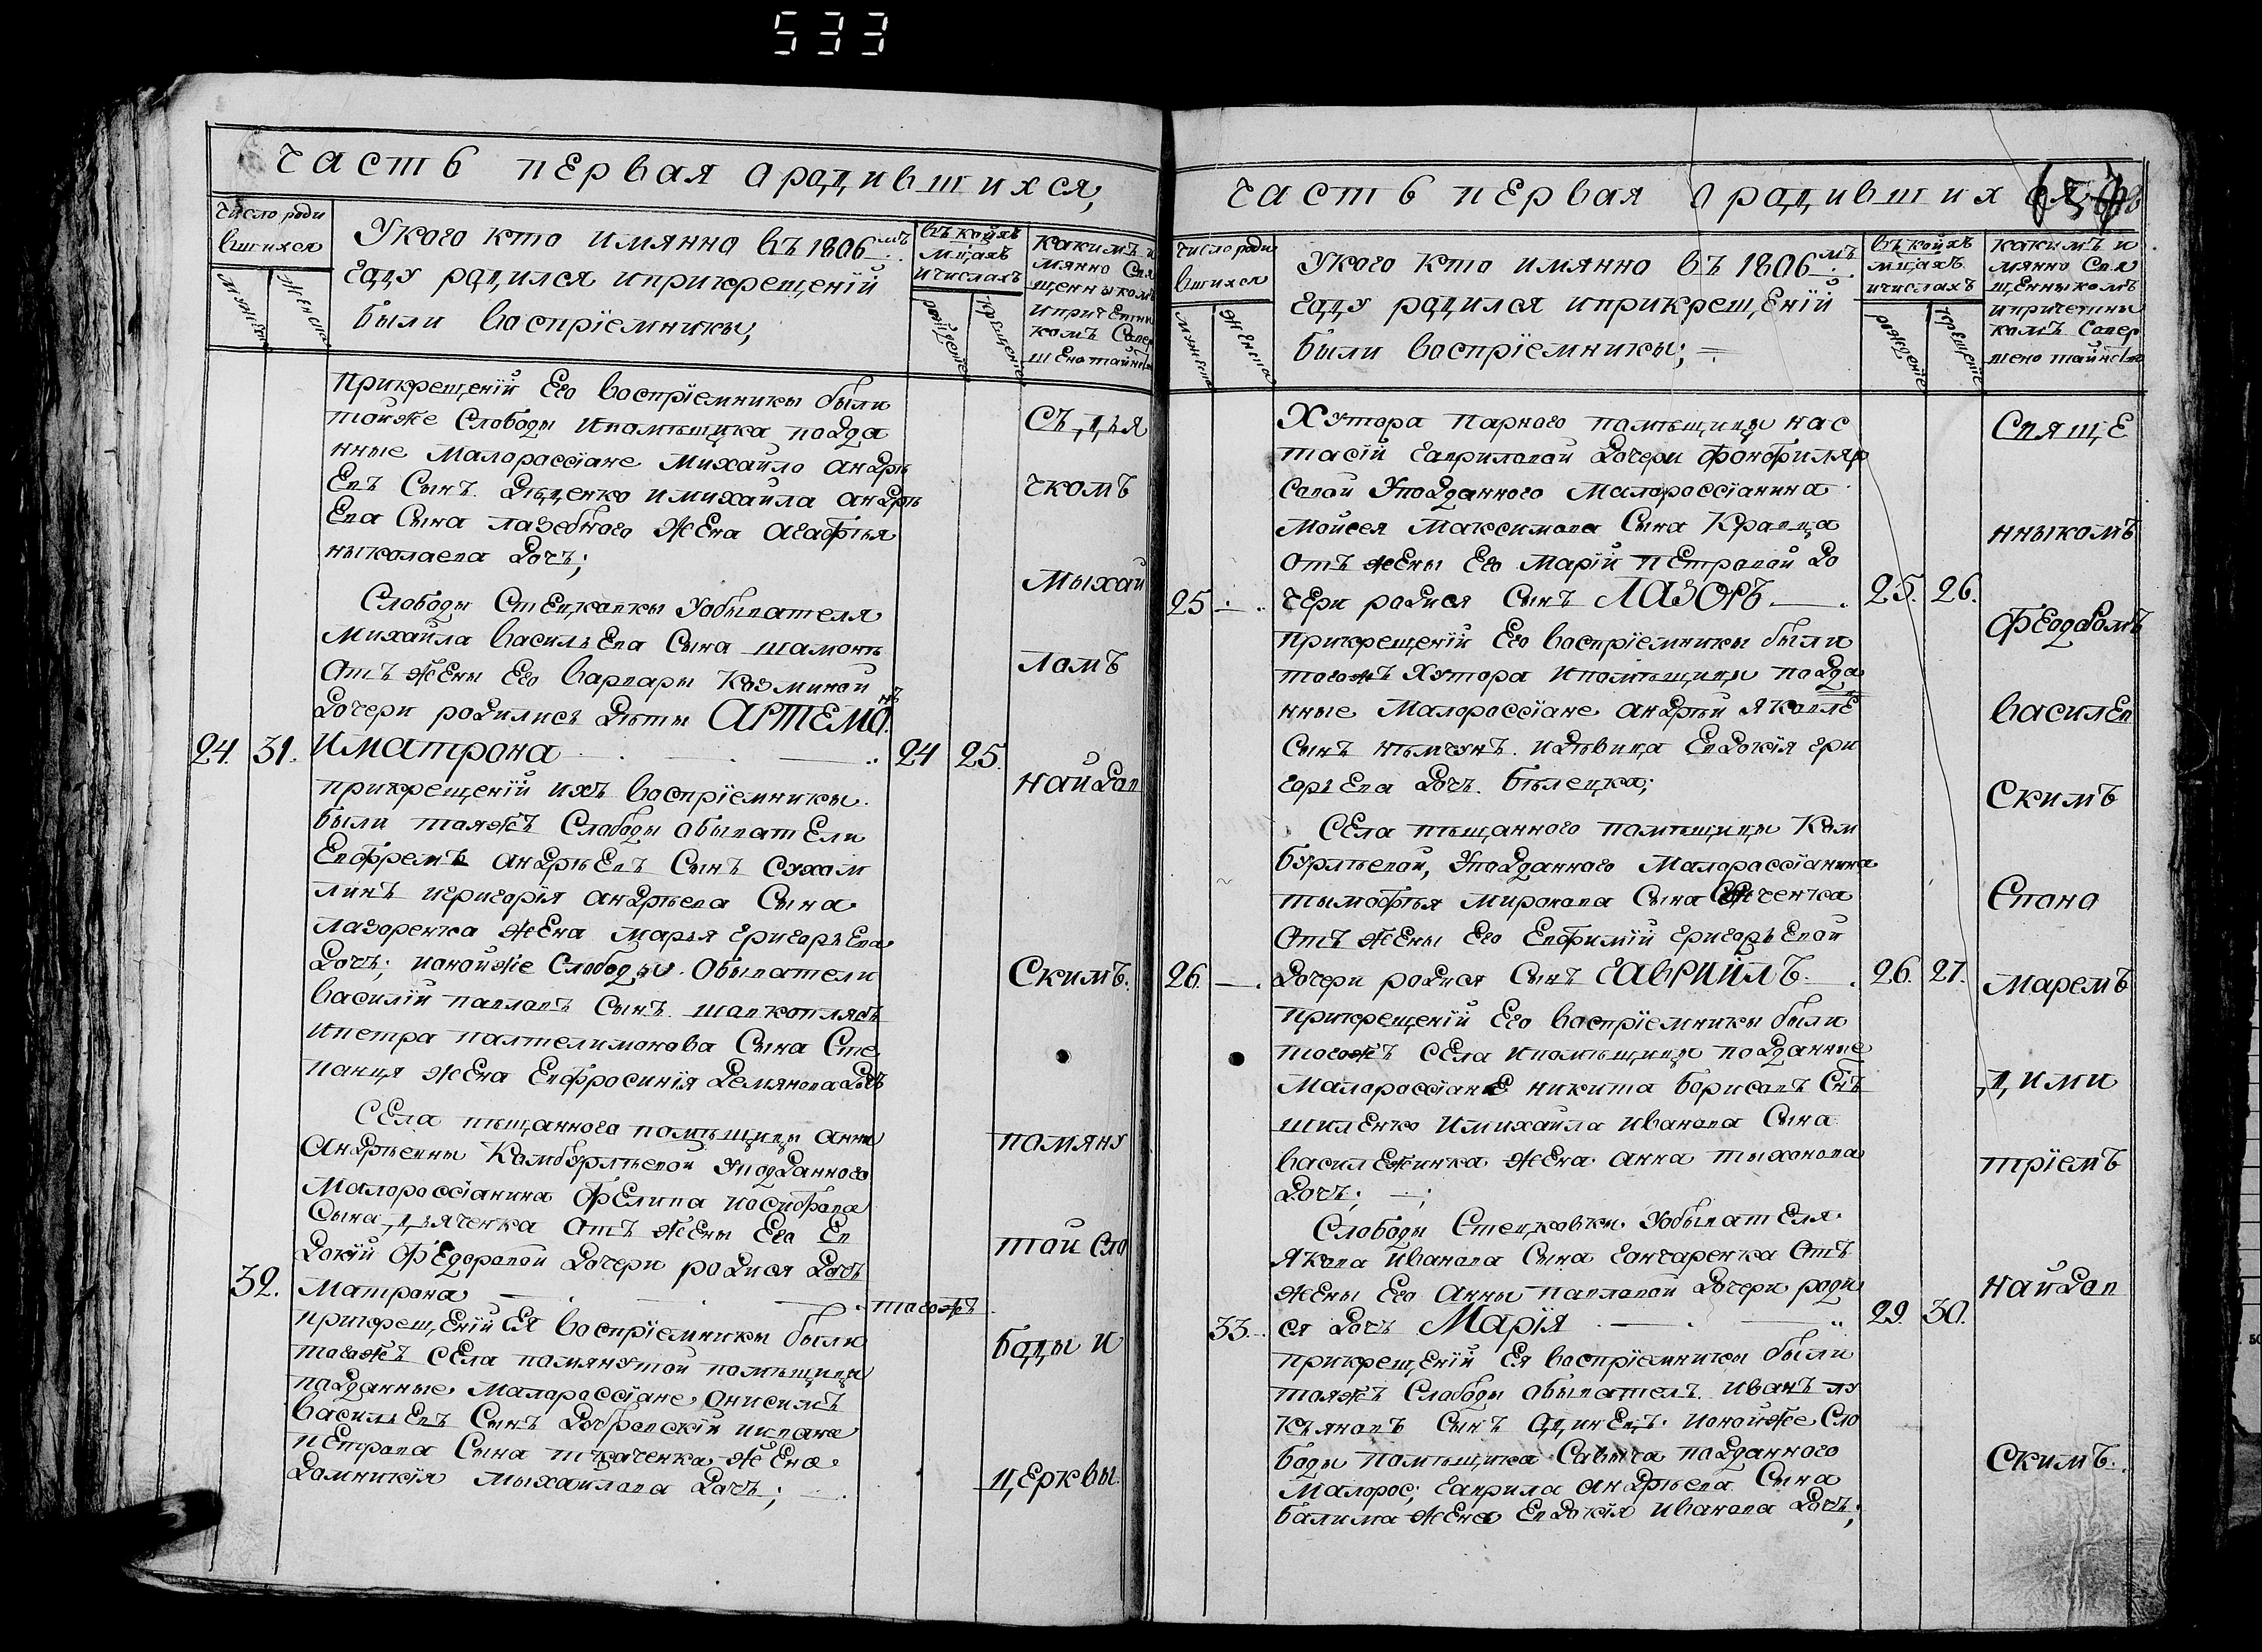 533
Часть первая ородившихся,
число роди
вшихся
мужеска
женска
Укого кто имянно въ 1806мъ
году родился иприкрещеніи
были воспріемники;
въ коихъ
мцахъ
ичислахъ
рожденіе
крещеніе
какимъ и
мянно Свя
щенныкомъ
ипричетны
комъ Совер
шено таинство
прикрещеніи Его воспріемники были
тоиже Слободы ипомѣщика подда
нные Малороссіане Михаило андрѣ
Евъ Сынъ Дѣденко имихаила андрѣ
Ева Сына лазебного жена агафѣя
ныколаева Дочь;
Слободы Стецковки Уобывателя
Михаила васильЕва Сына шамонѣ
Отъ жены Его варвары Козминой
Дочери родились Дѣты АРТЕМОНЪ
24. 31. иматрона 24 25.
прикрещеніи ихъ воспріемники
были тояжъ Слободы обыватЕли
Евфремъ андрѣЕвъ Сынъ Сухом
линъ игригорія андрѣева Сына
лазоренка жена марья григорьЕва
Дочь; ионойже Слободы Обыватели
василій павловъ Сынъ шапкоплясъ
ипетра пантелимонова Сына Сте
панця жена Евфросинія Демянова Дочь
СЕла пѣщанного помѣщицы анны
Андрѣевны Комбурлѣевой Уподданного
Малороссіанина ФЕлипа иосифова
Сына дяченка Отъ жены Его Ев
Докіи ФЕдоровой Дочери родися Дочь
32. Матрона тогожъ
прикрещЕніи Ея воспріемники были
тогожъ СЕла помянутой помѣщици
подданные малороссіане онисимъ
васильЕвъ Сынъ Добровскій иивана
пЕтрова Сына ткаченка жЕна
Домникія мыхаилова Дочь;
Съ дья
чкомъ
Мыхай
ломъ
найдов
Скимъ.
помяну
той Сло
боды и
цЕрквы
Часть пЕрвая ородившихся
число роди
вшихся
мужеска
женска
Укого кто имянно въ 1806мъ
году родился иприкрещЕніи
были воспріемники;
въ коихъ
мцахъ
ичислахъ
рожденіе
крещеніе
какимъ и
мянно Свя
щЕнныкомъ
ипричетны
комъ Совер
шено таинство
Хутора парного помѣщицы нас
тасіи гавриловой Дочери фонфиляр
Совой Уподданного Малороссіанина
Мойсея Максимова Сына Кравца
Отъ жены Его Маріи пЕтровой До
25 чери родися Сынъ ЛАЗОРЪ 25. 26.
прикрещеніи Его воспріемники были
тогожъ Хутора ипомѣщицы подда
нные Малороссіане андрѣй яковлЕ
Сынъ нѣмчунъ идѣвица Евдокія гри
горьЕва Дочь бѣлецка;
СЕла пѣщанного помѣщицы Ком
бурлѣевой, Уподданного Малороссіанина
тымофѣя миронова Сына Сенченка
Отъ жены Его Евфиміи григорьЕвой
26. Дочери родися Сынъ ГАВРІИЛЪ 26. 27.
прикрещеніи Его воспріемники были
тогожъ СЕла ипомѣщицы подданные
Малороссіане никита борисовъ Снъ
шилЕнко имихаила иванова Сына
василЕжинка жена анна тыхонова
Дочь;
Слободы Стецковки Уобывателя
якова иванова Сына гончаренка Отъ
жены Его Анны павловой Дочери роди
33. ся Дочь Марія 29. 30.
прикрещЕніи Ея воспріемники были
тояжъ Слободы обыватель иванъ лу
кьяновъ Сынъ динЕцъ ионойже Сло
боды помѣщика Савыча подданного
Малорос; гаврила андрѣева Сына
балима жена Евдокія иванова Дочь;
СвящЕ
нныкомъ
ФЕодоомъ
василЕв
Скимъ
Спона
марЕмъ
дими
тріемъ
найдов
Скимъ.